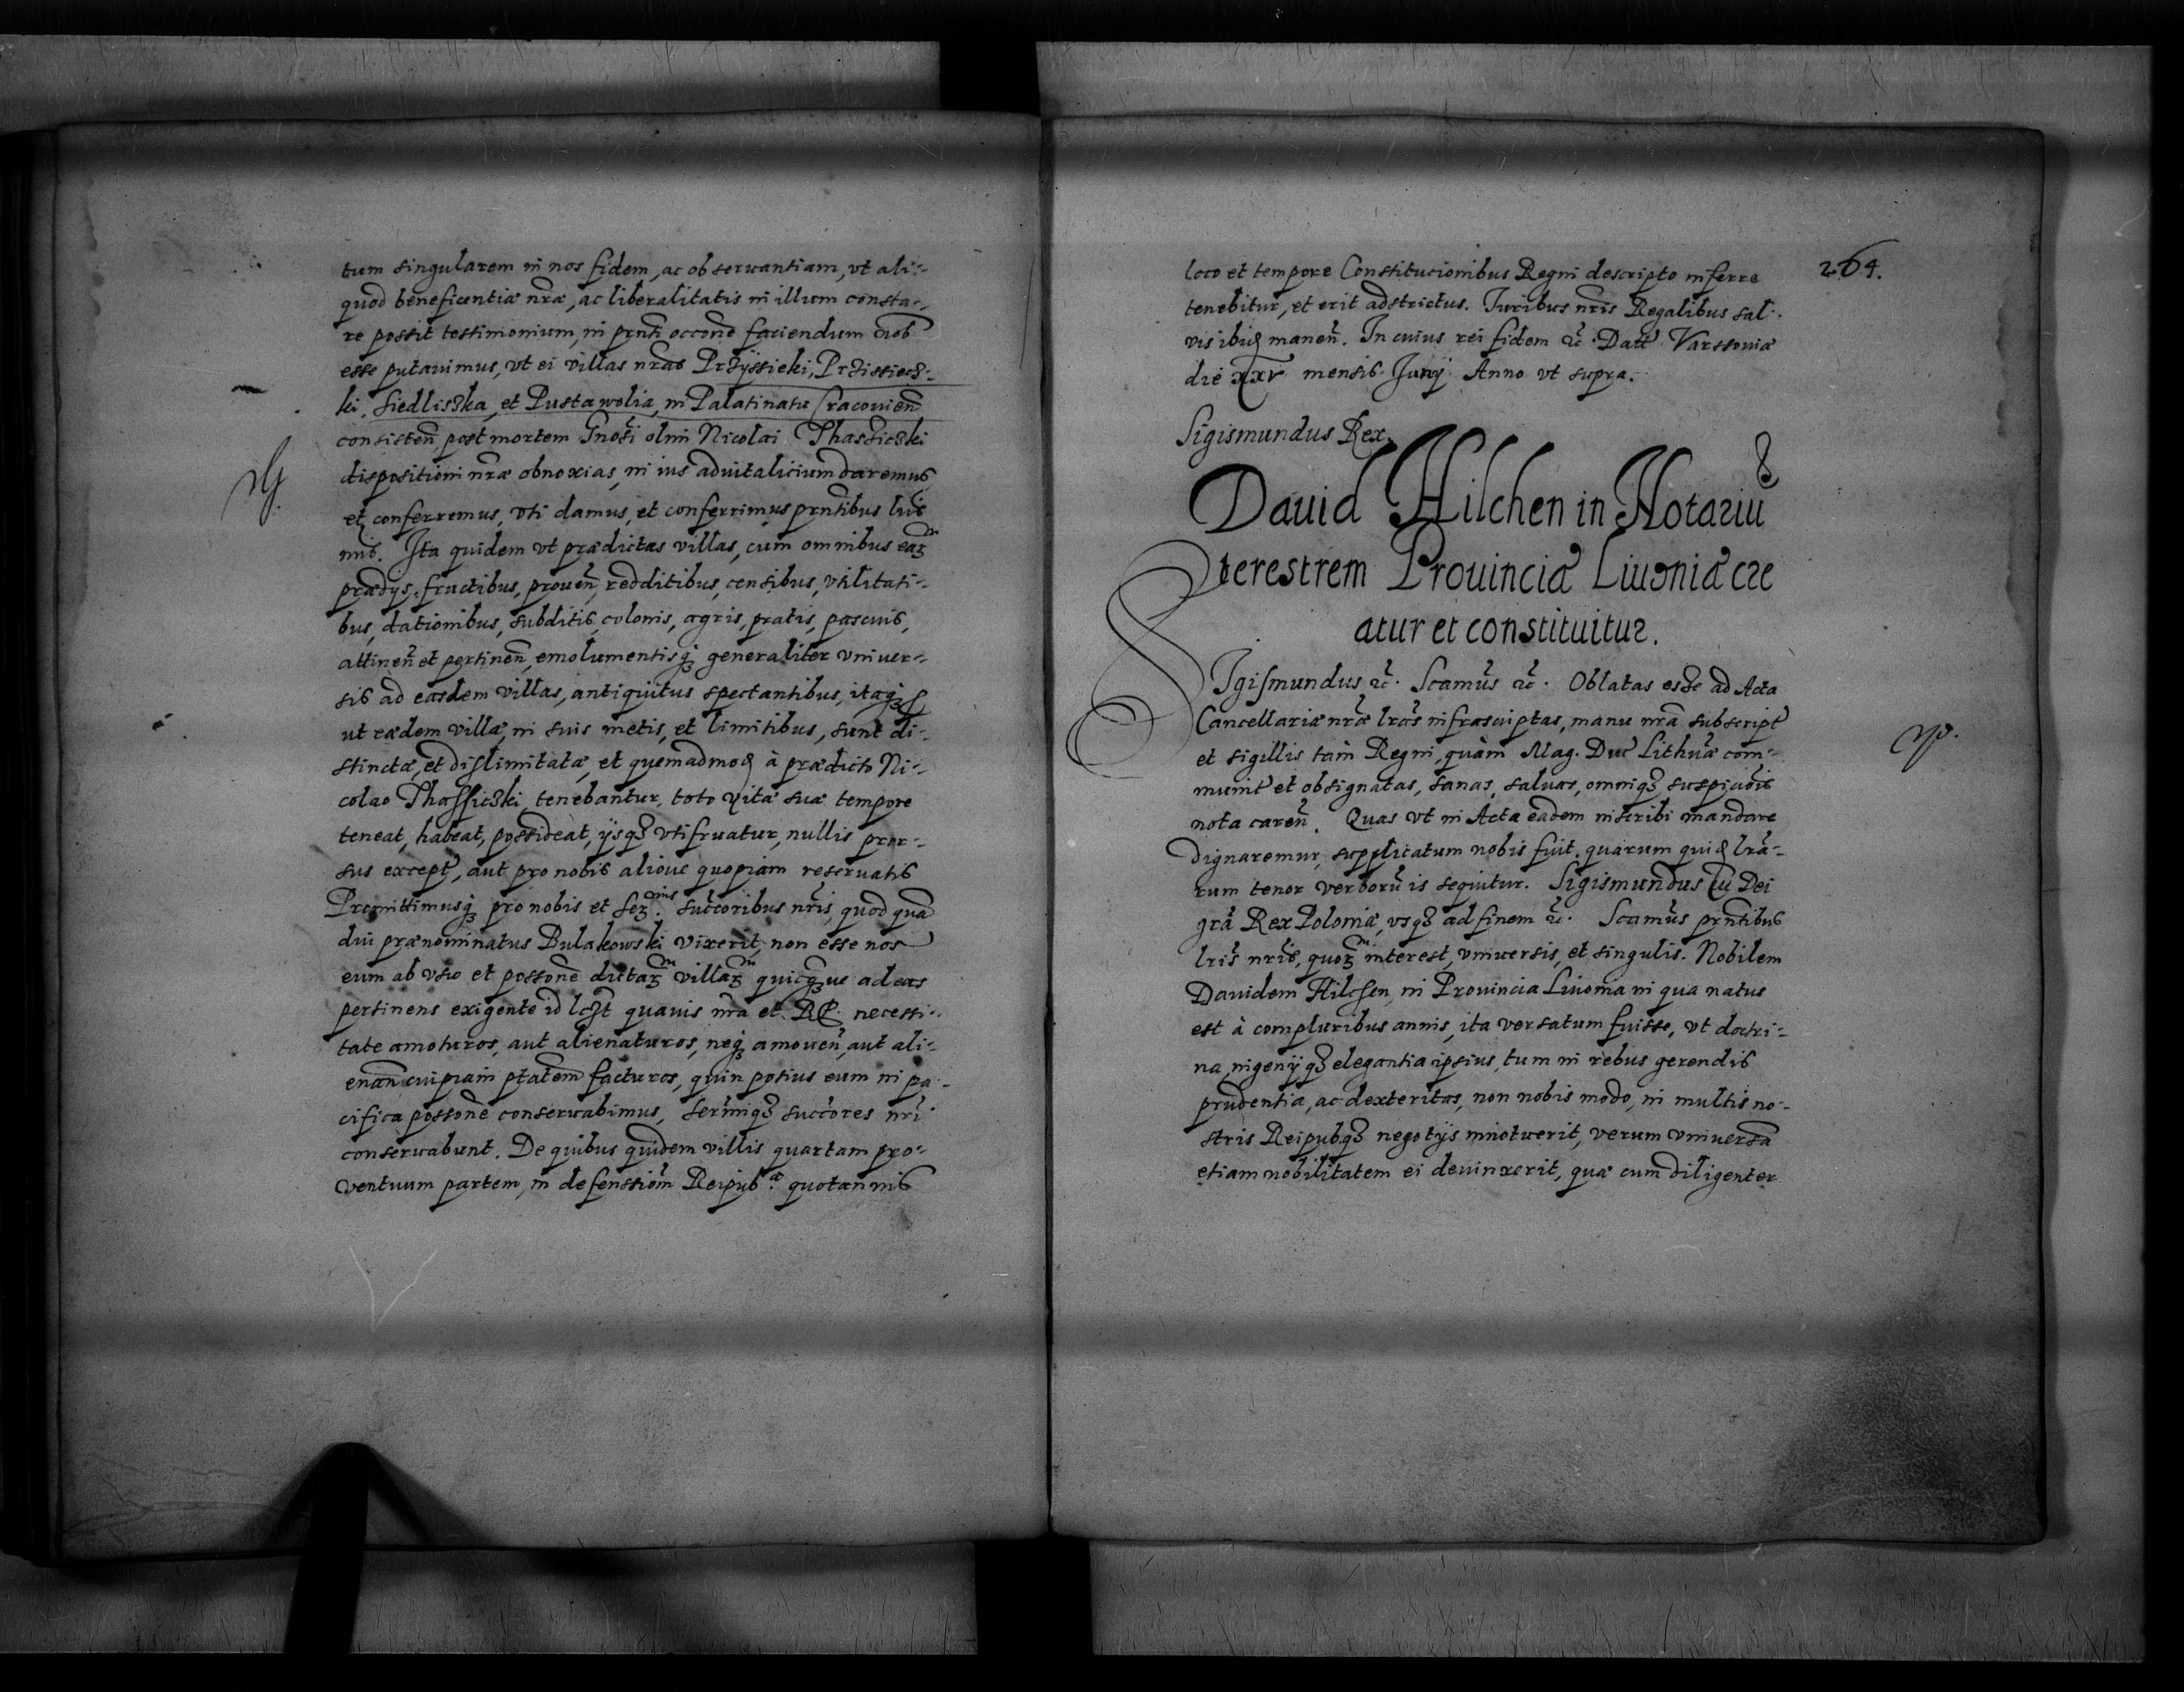 tum singularem in nos fidem, ac obseruantiam, vt ali-
quod beneficentiæ nræ, ac liberalitatis in illum consta-
re possit testimonium, in prnti occone faciendum nob
esse putauimus, vt ei villas nras Przÿssieki, Przissiecz-
ki, Siedliska, et Pustawolia, in Palatinatu Cracouien
consisten, post mortem Gnosi olim Nicolai Thassiczki
dispositioni nræ obnoxias, in ius aduitalicium daremus
et conferremus, vti damus, et conferrimus prntibus lris
nris. Ita quidem vt prædictas villas, cum omnibus earum
prædijs, fructibus, prouen, redditibus, censibus, vtilitati-
bus, dationibus, subditis, colonis, agris, pratis, pascuis,
attinen et pertinen, emolumentisq generaliter vniuer-
sis ad easdem villas, antiquitus spectantibus, itaq
ut eædem villæ, in suis metis, et limitibus, sunt di-
stinctæ, et dislimitatæ, et quemadmod à prædicto Ni-
colao Thassiczki tenebantur, toto vitæ suæ tempore
teneat, habeat, possideat, ijsq vtifruatur, nullis pror-
sus except, aut pro nobis alioue quopiam reservatis
Promittimusq pro nobis et Ser.mis succoribus nris, quod quam
diu prænominatus Bulakowski vixerit, non esse nos
eum ab vsu et possone dictarum villarum quicq ue ad eas
pertinens exigente id lczt quauis nra et RP. necessi-
tate amoturos, aut alienaturos, neq amouen, aut ali-
enan cuipiam ptatem facturos, quin potius eum in pa-
cifica possone conseruabimus, Sermiq succores nri
conseruabunt. De quibus quidem villis quartam pro-
ventuum partem, in defensiom Reipub.æ quotannis
264.
loco et tempore Constitucionibus Regni descripto inferre
tenebitur, et erit adstrictus. Iuribus nris Regalibus sal-
vis ibid manen. In cuius rei fidem &c. Datt Varssouiæ
die XXV mensis Junij Anno vt supra.
Sigismundus Rex.
Dauid Hilchen in Notariu
terestrem Prouinciæ Liuoniæ cre
atur et constituitur.
SIgismundus &c. Scamus &c. Oblatas esse ad Acta
Cancellariæ nræ lras infrascriptas, manu nra subscript
et sigillis tam Regni, quàm Mag. Duc Lithuæ com-
munit et obsignatas, sanas, saluas, omniq suspicois
nota caren. Quas vt in Acta eadem inscribi mandare
dignaremur, supplicatum nobis fuit. quarum quid lra-
rum tenor verboru is sequitur. Sigismundus IIIu Dei
gra Rex Poloniæ, vsq ad finem &c. Scamus prntibus
lris nris, quorum interest, vniuersis, et singulis. Nobilem
Dauidem Hilchen, in Prouincia Liuonia in qua natus
est à compluribus annis, ita versatum fuisse, vt doctri-
na, ingenijq elegantia ipsius, tum in rebus gerendis
prudentia, ac dexteritas, non nobis modo, in multis no-
stris Reipubq negotijs innotuerit, verum vniuersam
etiam nobilitatem ei deuinxerit, quæ cum diligenter